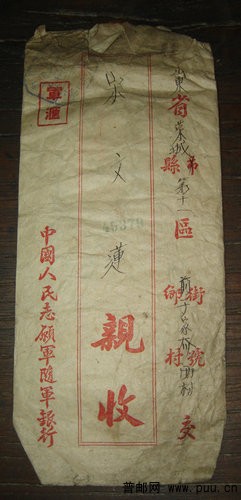 山東省荣城縣市第十一區
鄉街
村號
交
46370
文蓮親收
軍滙
中國人民志願軍隨軍銀行
普邮网 www.puu.cn